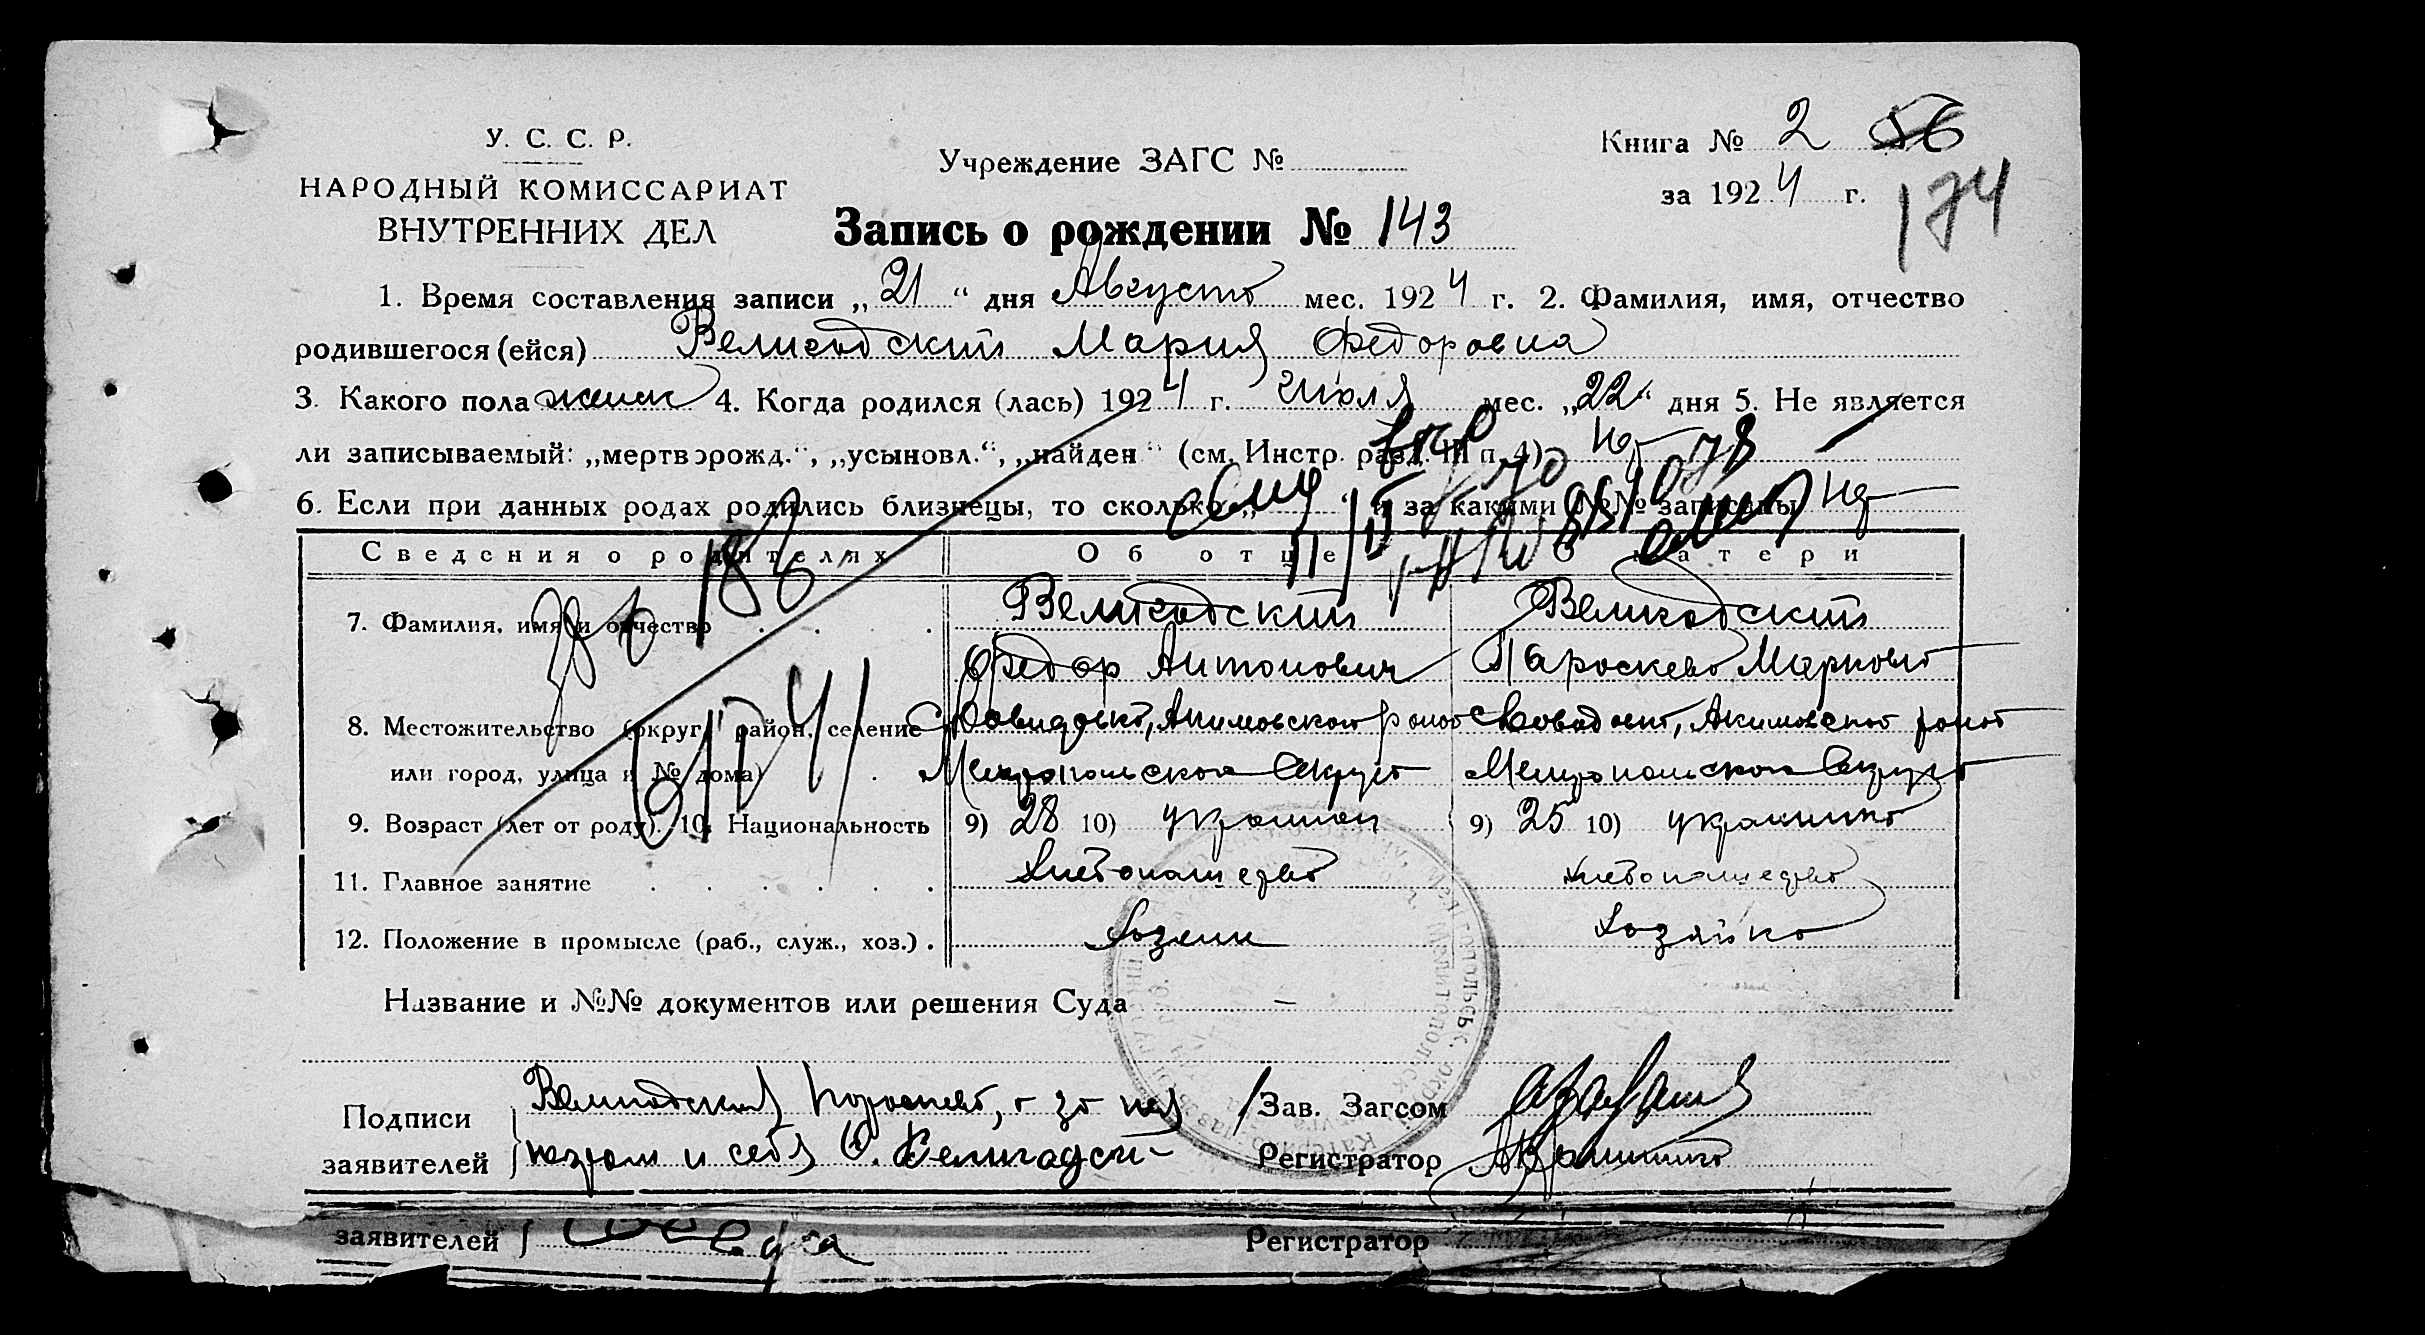 У. С. С. Р.
НАРОДНЫЙ КОМИССАРИАТ
ВНУТРЕННИХ ДЕЛ
Учреждение ЗАГС №
Книга № 2 56
за 1924 г.
174
Запись о рождении № 143
1. Время составления записи „21“ дня Августа мес. 1924 г. 2. Фамилия, имя, отчество
родившегося (ейся) Велигодский Мария Федоровна
3. Какого пола женск 4. Когда родился (лась) 1924 г. Июля мес. „22“ дня 5. Не является
ли записываемый: „мертворожд.“, „усыновл.“, „найден“ (см. Инстр. разд. III п. 4)
6. Если при данных родах родились близнецы, то сколько „ “ и за какими №№ записаны
Сведения о родителях Об отце О матери
7. Фамилия, имя и отчество Велигодский Великодский
Федор Антонович Параскева Маркова
8. Местожительство (округ, район, селение Акимовского район Акимовского район
или город, улица и № дома) Мелитопольского Округа Мелитопольского Округа
9. Возраст (лет от роду). 10. Национальность 9) 28 10) украинец 9) 25 10) украинка
11. Главное занятие Хлебопашество хлебопашество
12. Положение в промысле (раб., служ., хоз.) Хозяин Хозяйка
Название и №№ документов или решения Суда –
Подписи
заявителей
Великодская Пароскева, а за нея
и себя Ф. Велигодский
Зав. Загсом
Регистратор
заявителей
Регистратор